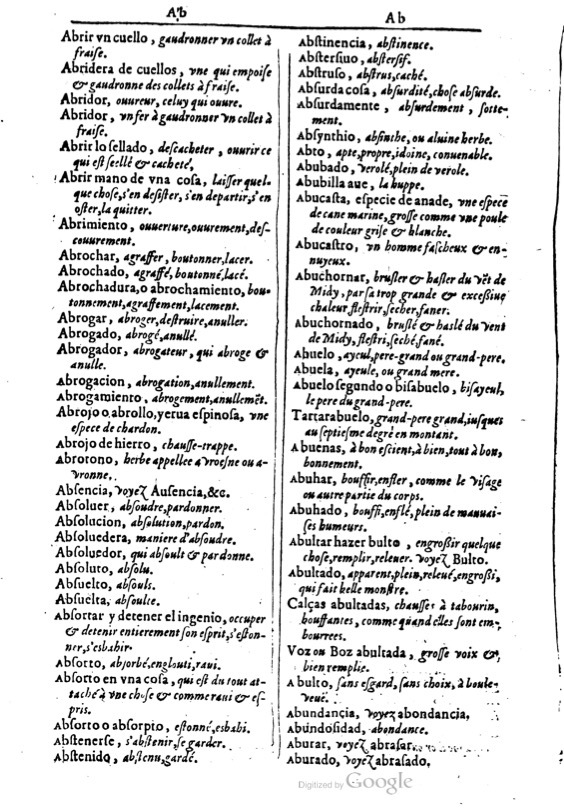 Ab
Abrir vn cuello, gaudronner vn collet à
fraise.
Abridera de cuellos, vne qui empoise
& gaudronne des collets à fraise.
Abridor, ouureur, celuy qui ouure.
Abridor, vn fer à gaudronner vn collet à
fraise.
Abrir lo sellado, descacheter, ouurir ce
qui est seellé & cacheté,
Abrir mano de vna cosa, laisser quel-
que chose, s'en desister, s'en departir, s'en
oster, la quitter.
Abrimiento, ouuerture, ouurement, des-
couurement.
Abrochar, agraffer, boutonner, lacer.
Abrochado, agraffé, boutonné, lacé.
Abrochadura, o abrochamiento, bou-
tonnement, agraffement, lacement.
Abrogar, abroger, destruire, anuller.
Abrogado, abrogé, anullé.
Abrogador, abrogateur, qui abroge &
anulle.
Abrogacion, abrogation, anullement.
Abrogamiento, abrogement, anullemẽt.
Abrojo o, abrollo, yerua espinosa, vne
espece de chardon.
Abrojo de hierro, chausse-trappe.
Abrotono, herbe appellee avroesne ou a-
vronne.
Absencia, voyez Ausencia, &c.
Absoluer, absoudre, pardonner.
Absolucion, absolution, pardon.
Absoluedera, maniere d'absoudre.
Absoluedor, qui absoult & pardonne.
Absoluto, absolu.
Absuelto, absouls.
Absuelta, absoulte.
Absortar y detener el ingenio, occuper
& detenir entierement son esprit, s'eston-
ner, s'esbahir.
Absorto, absorbé, englouti, raui.
Absorto en vna cosa, qui est du tout at-
taché à vne chose & comme raui & es-
pris.
Absorto o absorpto, estonné, esbahi.
Abstenerse, s'abstenir, se garder.
Abstenido, abstenu, gardé.
Ab
Abstinencia, abstinence.
Abstersiuo, abstersif.
Abstruso, abstrus, caché.
Absurda cosa, absurdité, chose absurde.
Absurdamente, absurdement, sotte-
ment.
Absynthio, absinthe, ou aluine herbe.
Abto, apte, propre, idoine, conuenable.
Abubado, verolé, plein de verole.
Abubilla aue, la huppe.
Abucasta, especie de anade, vne espece
de cane marine, grosse comme vne poule
de couleur grise & blanche.
Abucastro, vn homme fascheux & en-
nuyeux.
Abuchornar, brusler & hasler du vẽt de
Midy, par sa trop grande & excessiue
chaleur flestrir, secher, faner.
Abuchornado, bruslé & haslé du vent
de Midy, flestri, seché, fané.
Abuelo, ayeul, pere-grand ou grand-pere.
Abuela, ayeule, ou grand mere.
Abuelo segundo o bisabuelo, bisayeul,
le pere du grand-pere.
Tartarabuelo, grand-pere grand, iusques
au septiesme degré en montant.
Abuenas, à bon escient, à bien, tout à bon,
bonnement.
Abuhar, bouffir, enfler, comme le visage
ou autre partie du corps.
Abuhado, bouffi, enflé, plein de mauuai-
ses humeurs.
Abultar hazer bulto, engrossir quelque
chose, remplir, releuer. voyez Bulto.
Abultado, apparent, plein, releué, engrossi,
qui fait belle monstre.
Calças abultadas, chausses à tabourin,
bouffantes, comme quand elles sont em-
bourrees.
Voz ou Boz abultada, grosse voix &
bien remplie.
A bulto, sans esgard, sans choix, à boule-
veuë.
Abundancia, voyez abondancia.
Abundosidad, abondance.
Aburar, voyez abrasar.
Aburado, voyez abrasado.
Digitized by Google